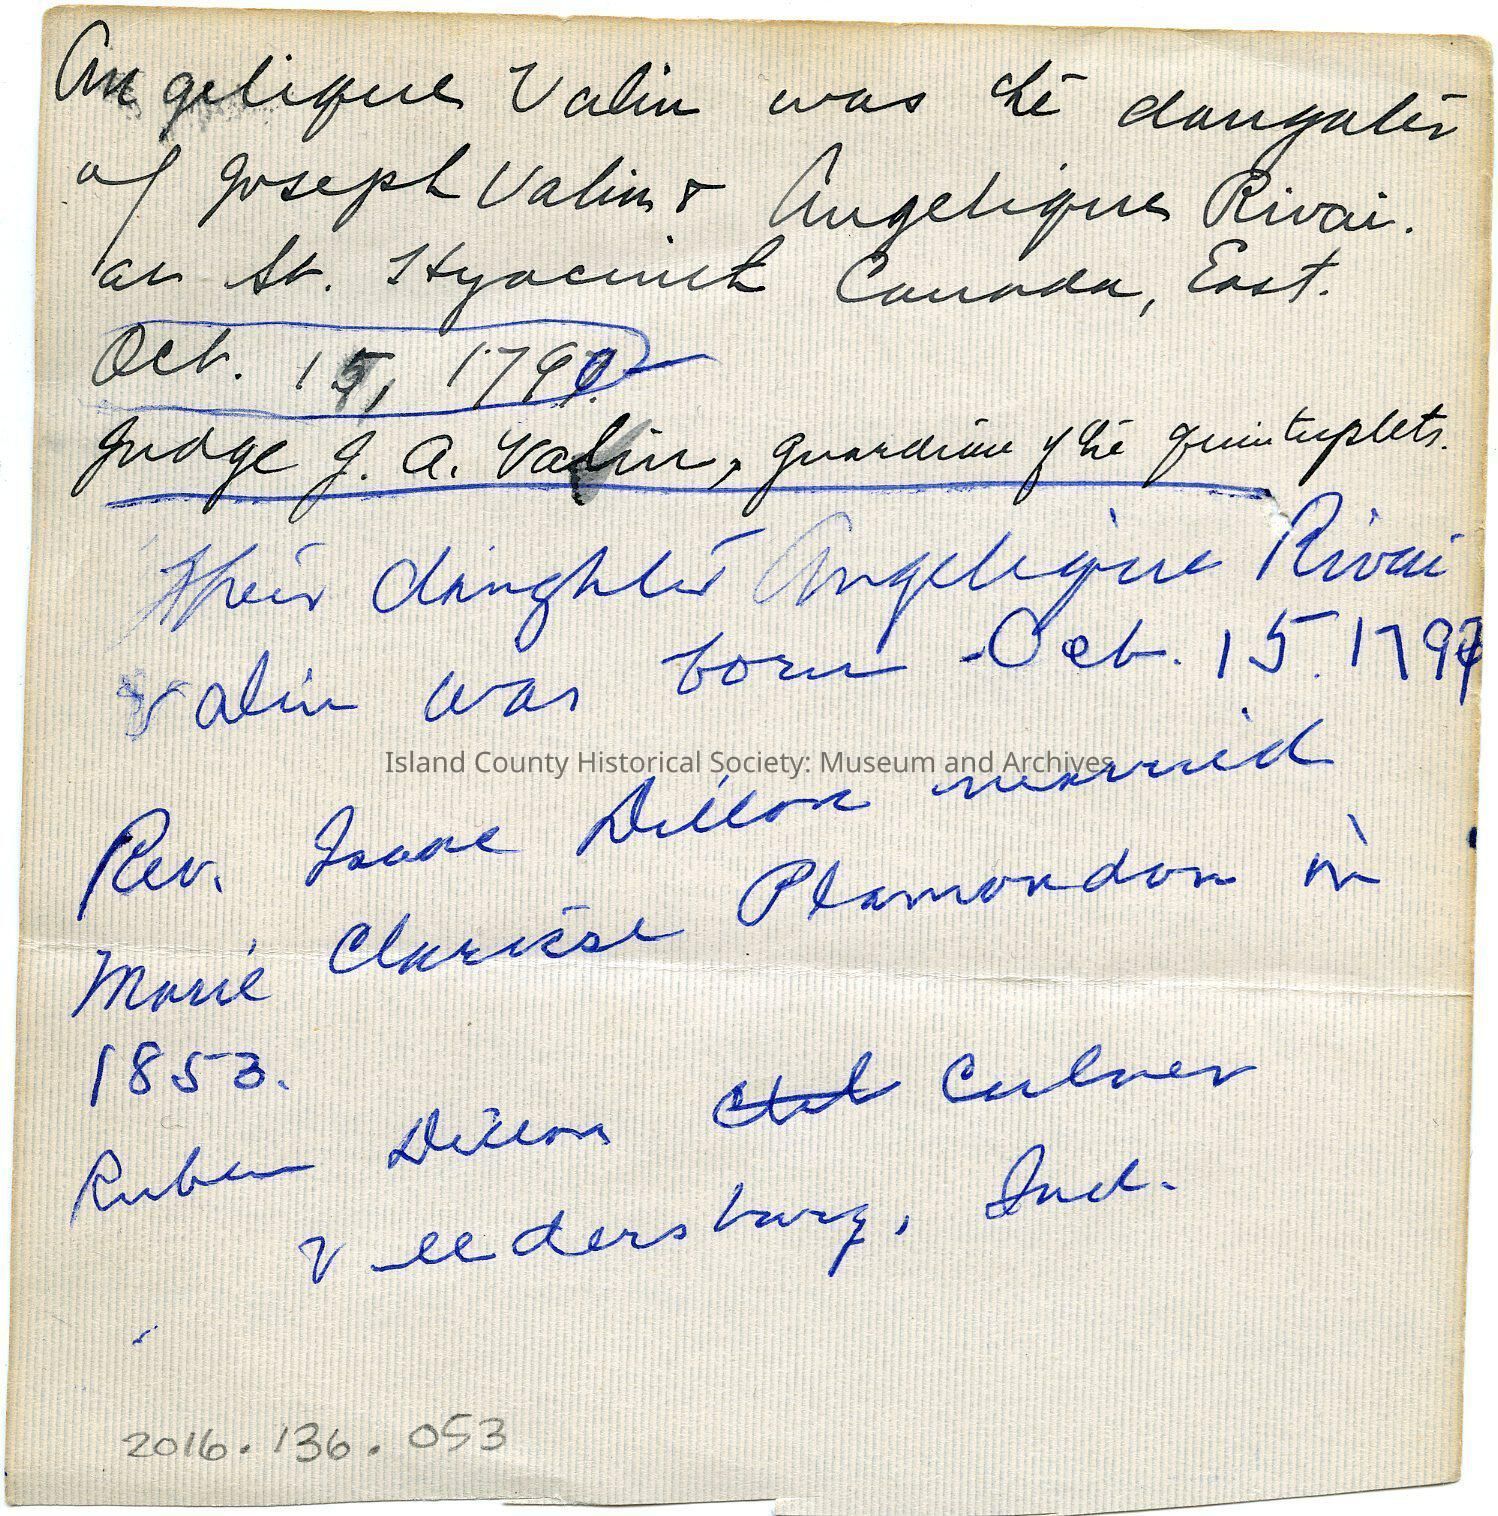 Angelique Valin was the daughter
of Joseph Valin & Angelique Rivai.
at St. Hyacinth Canada, East.
Oct. 15, 1797.
Judge J. A. Valin, guardian of the quintuplets.
Their daughter Angelique Rivai
Valin was born Oct. 15. 1797
Island County Historical Society: Museum and Archives
Rev. Isaac Dillon married
Marie Clarisse Plamondon in
1853.
Ruben Dillon Culver
Veedersburg, Ind.
2016.136.053